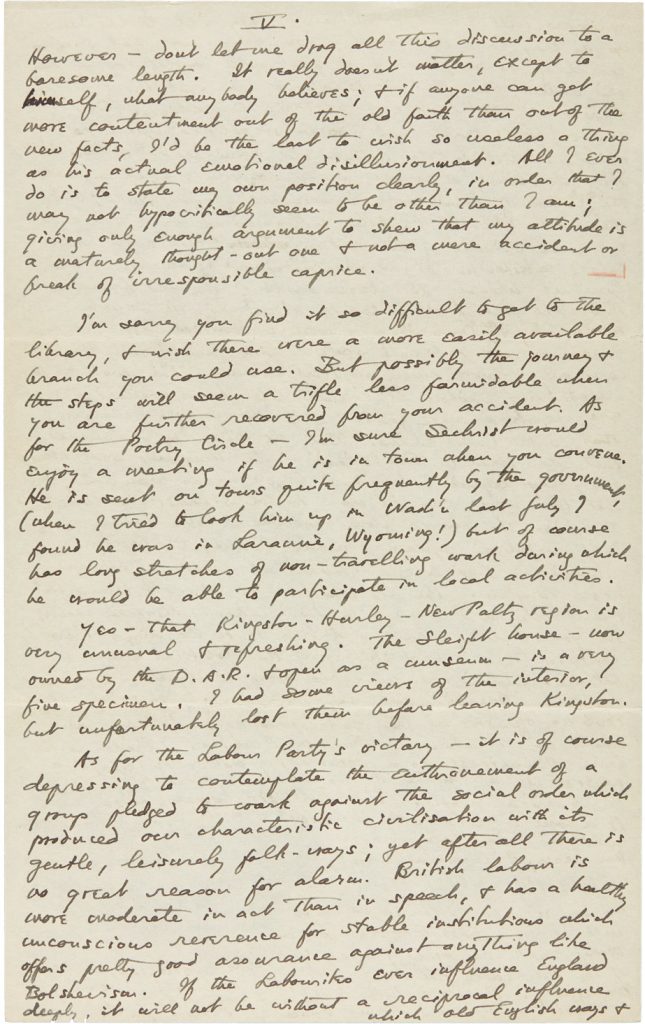 V.
However — don't let me drag all this discussion to a
boresome length. It really doesn't matter, except to
himself, what anybody believes; & if anyone can get
more contentment out of the old faith than out of the
new facts, I'd be the last to wish so useless a thing
as his actual emotional disillusionment. All I ever
do is to state my own position clearly, in order that I
may not hypocritically seem to be other than I am;
giving only enough argument to shew that my attitude is
a maturely thought-out one & not a mere accident or
freak of irresponsible caprice.
I'm sorry you find it so difficult to get to the
library, & wish there were a more easily available
branch you could use. But possibly the journey &
the steps will seem a trifle less formidable when
you are further recovered from your accident. As
for the Poetry Circle — I'm sure Sechrist would
enjoy a meeting if he is in town when you convene.
He is sent on tours quite frequently by the government,
(when I tried to look him up in Wash'n last July I
found he was in Laramie, Wyoming!) but of course
has long stretches of non-travelling work during which
he would be able to participate in local activities.
Yes — that Kingston-Hurley-New Paltz region is
very unusual & refreshing. The Sleight house — now
owned by the D.A.R. & open as a museum — is a very
fine specimen. I had some views of the interior,
but unfortunately lost them before leaving Kingston.
As for the Labour Party's victory — it is of course
depressing to contemplate the enthronement of a
group pledged to work against the social order which
produced our characteristic civilisation with its
gentle, leisurely folk-ways; yet after all there is
no great reason for alarm. British labour is
more moderate in act than in speech, & has a healthy
unconscious reverence for stable institutions which
offers pretty good assurance against anything like
Bolshevism. If the Labourites ever influence England
deeply, it will not be without a reciprocal influence
which old English ways &